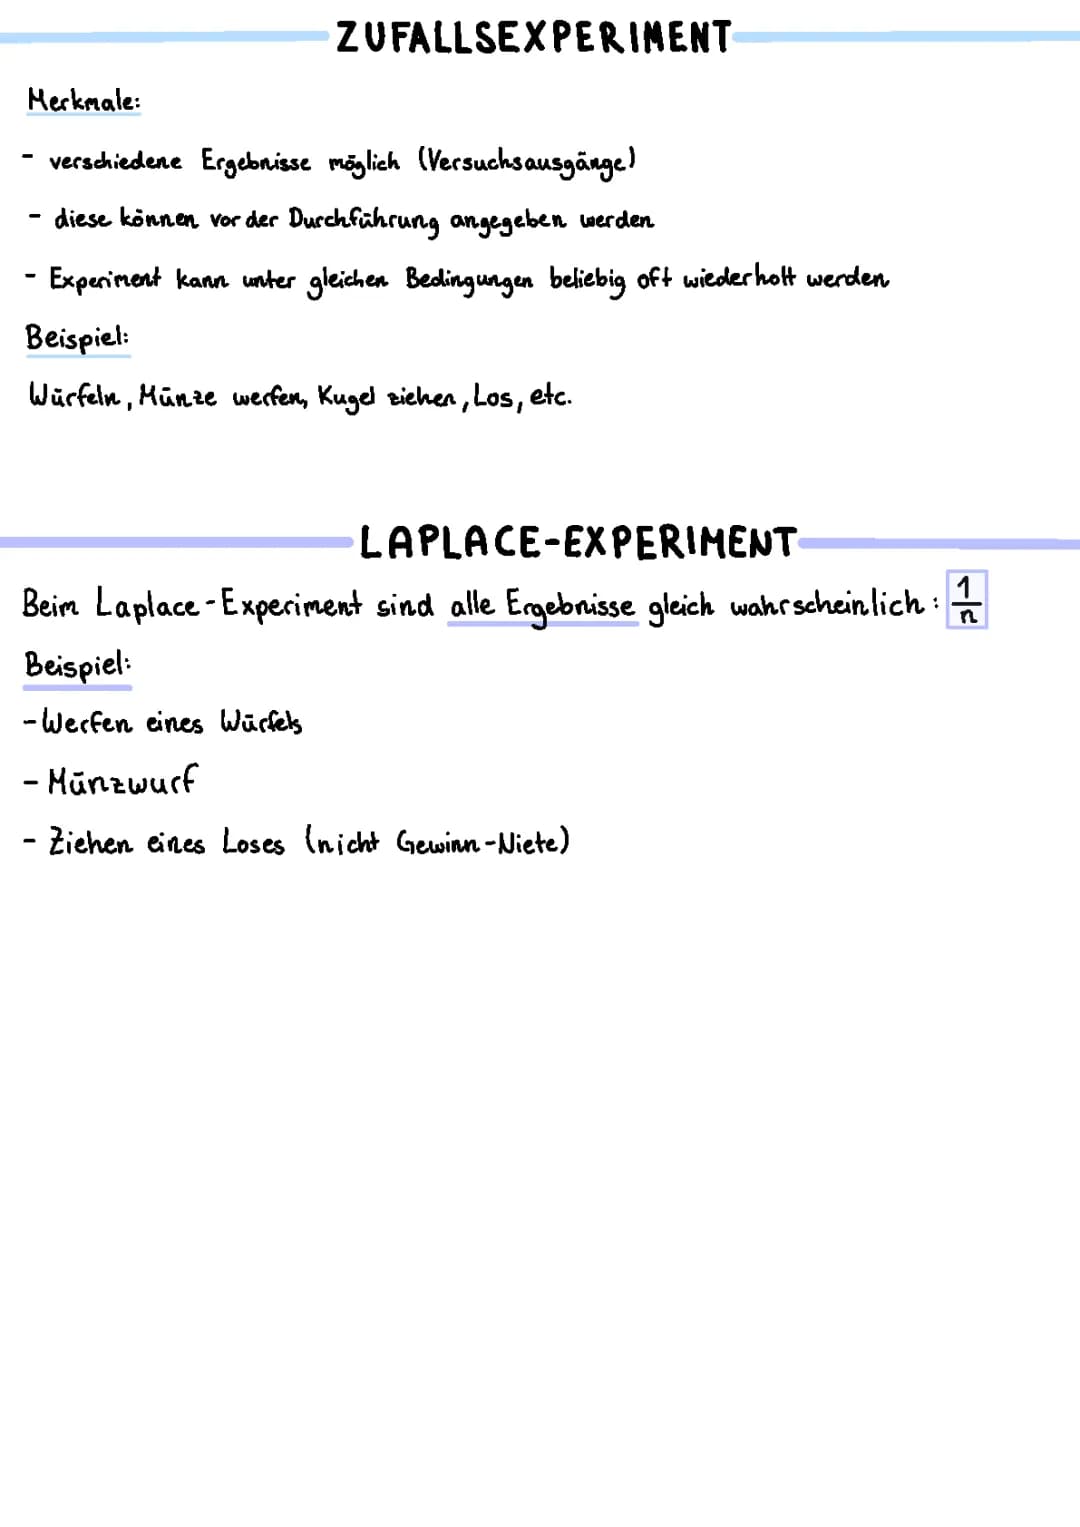 ZUFALLSEXPERIMENT
Merkmale:
- verschiedene Ergebnisse möglich (Versuchsausgänge)
- diese können vor der Durchführung angegeben werden
- Experiment kann unter gleichen Bedingungen beliebig oft wiederholt werden
Beispiel:
Würfeln, Münze werfen, Kugel ziehen, Los, etc.
LAPLACE-EXPERIMENT
Beim Laplace-Experiment sind alle Ergebnisse gleich wahrscheinlich: 1/n
Beispiel:
- Werfen eines Würfels
- Münzwurf
- Ziehen eines Loses (nicht Gewinn-Niete)